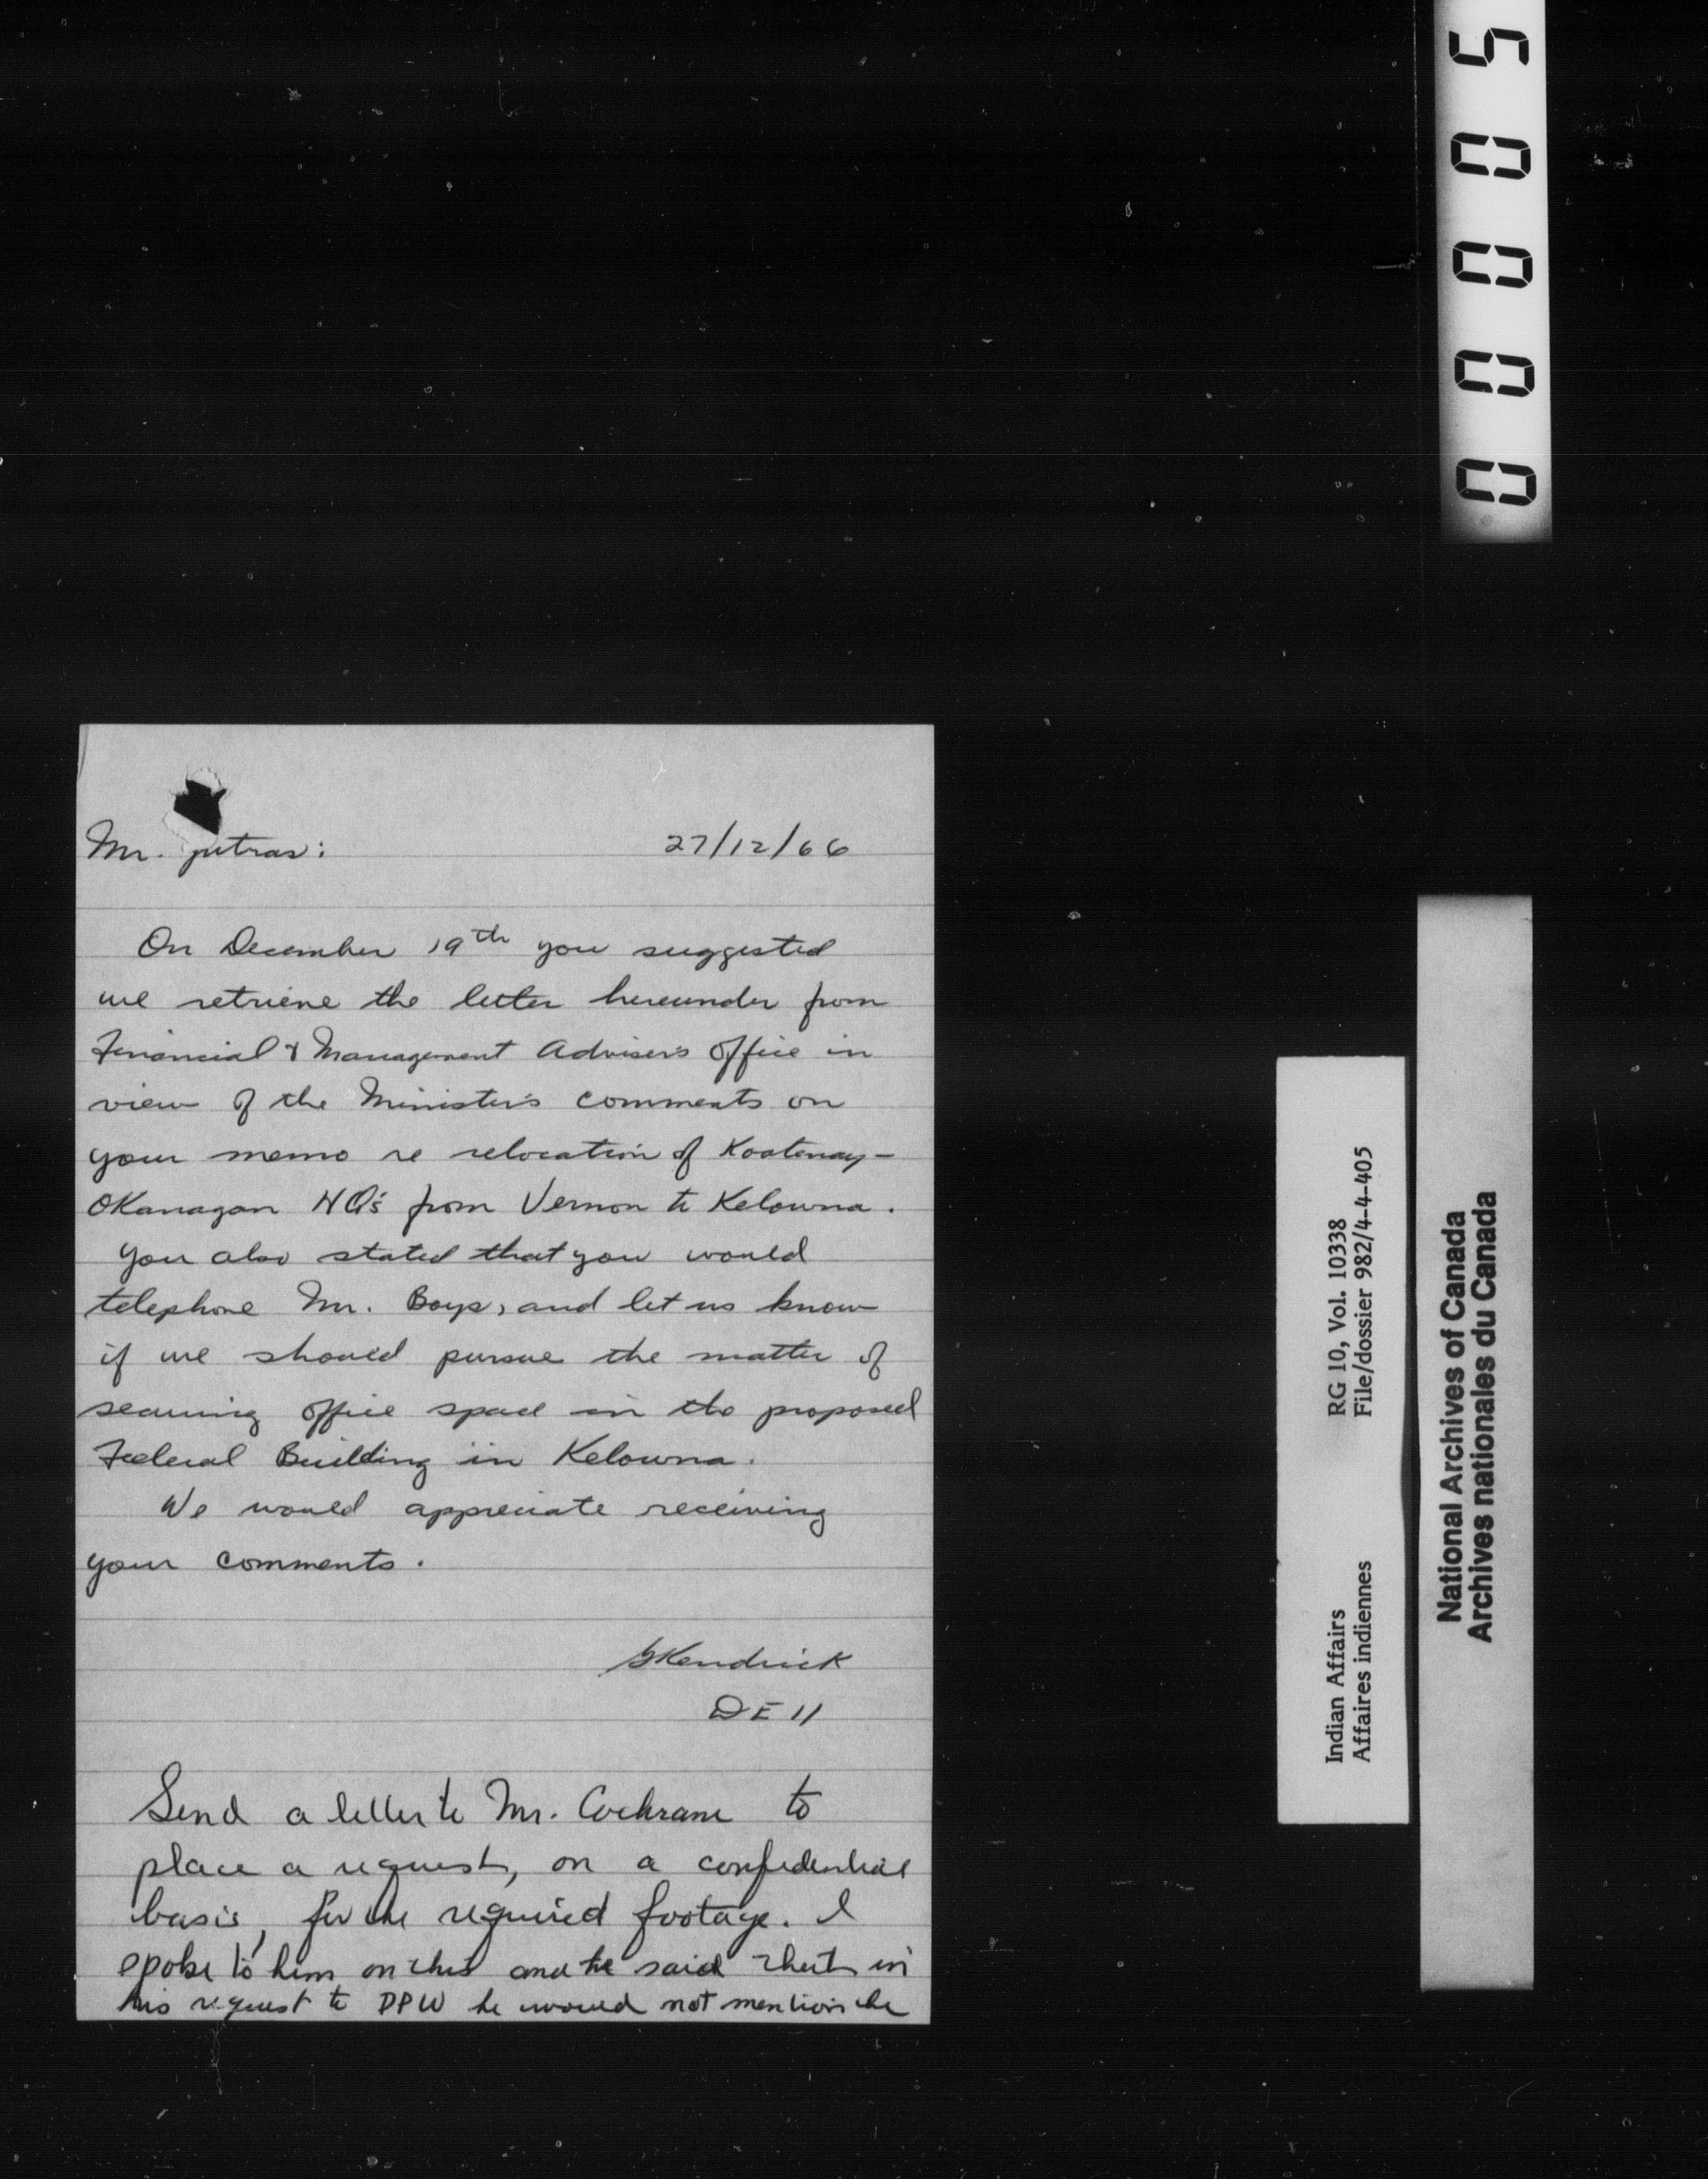 00005
Mr. Jutras: 27/12/66
On December 19th you suggested
we retrieve the letter hereunder from
Financial & Management Adviser's Office in
view of the Minister's comments on
your memo re relocation of Kootenay-
Okanagan HQ's from Vernon to Kelowna.
You also stated that you would
telephone Mr. Boys, and let us know
if we should pursue the matter of
securing office space in the proposed
Federal Building in Kelowna.
We would appreciate receiving
your comments.
GKendrick
DE 11
Send a letter to Mr. Cochrane to
place a request, on a confidential
basis, for the required footage. I
spoke to him on this and he said that in
his request to DPW he would not mention the
Indian Affairs RG 10, Vol. 10338
Affaires indiennes File/dossier 982/4-4-405
National Archives of Canada
Archives nationales du Canada